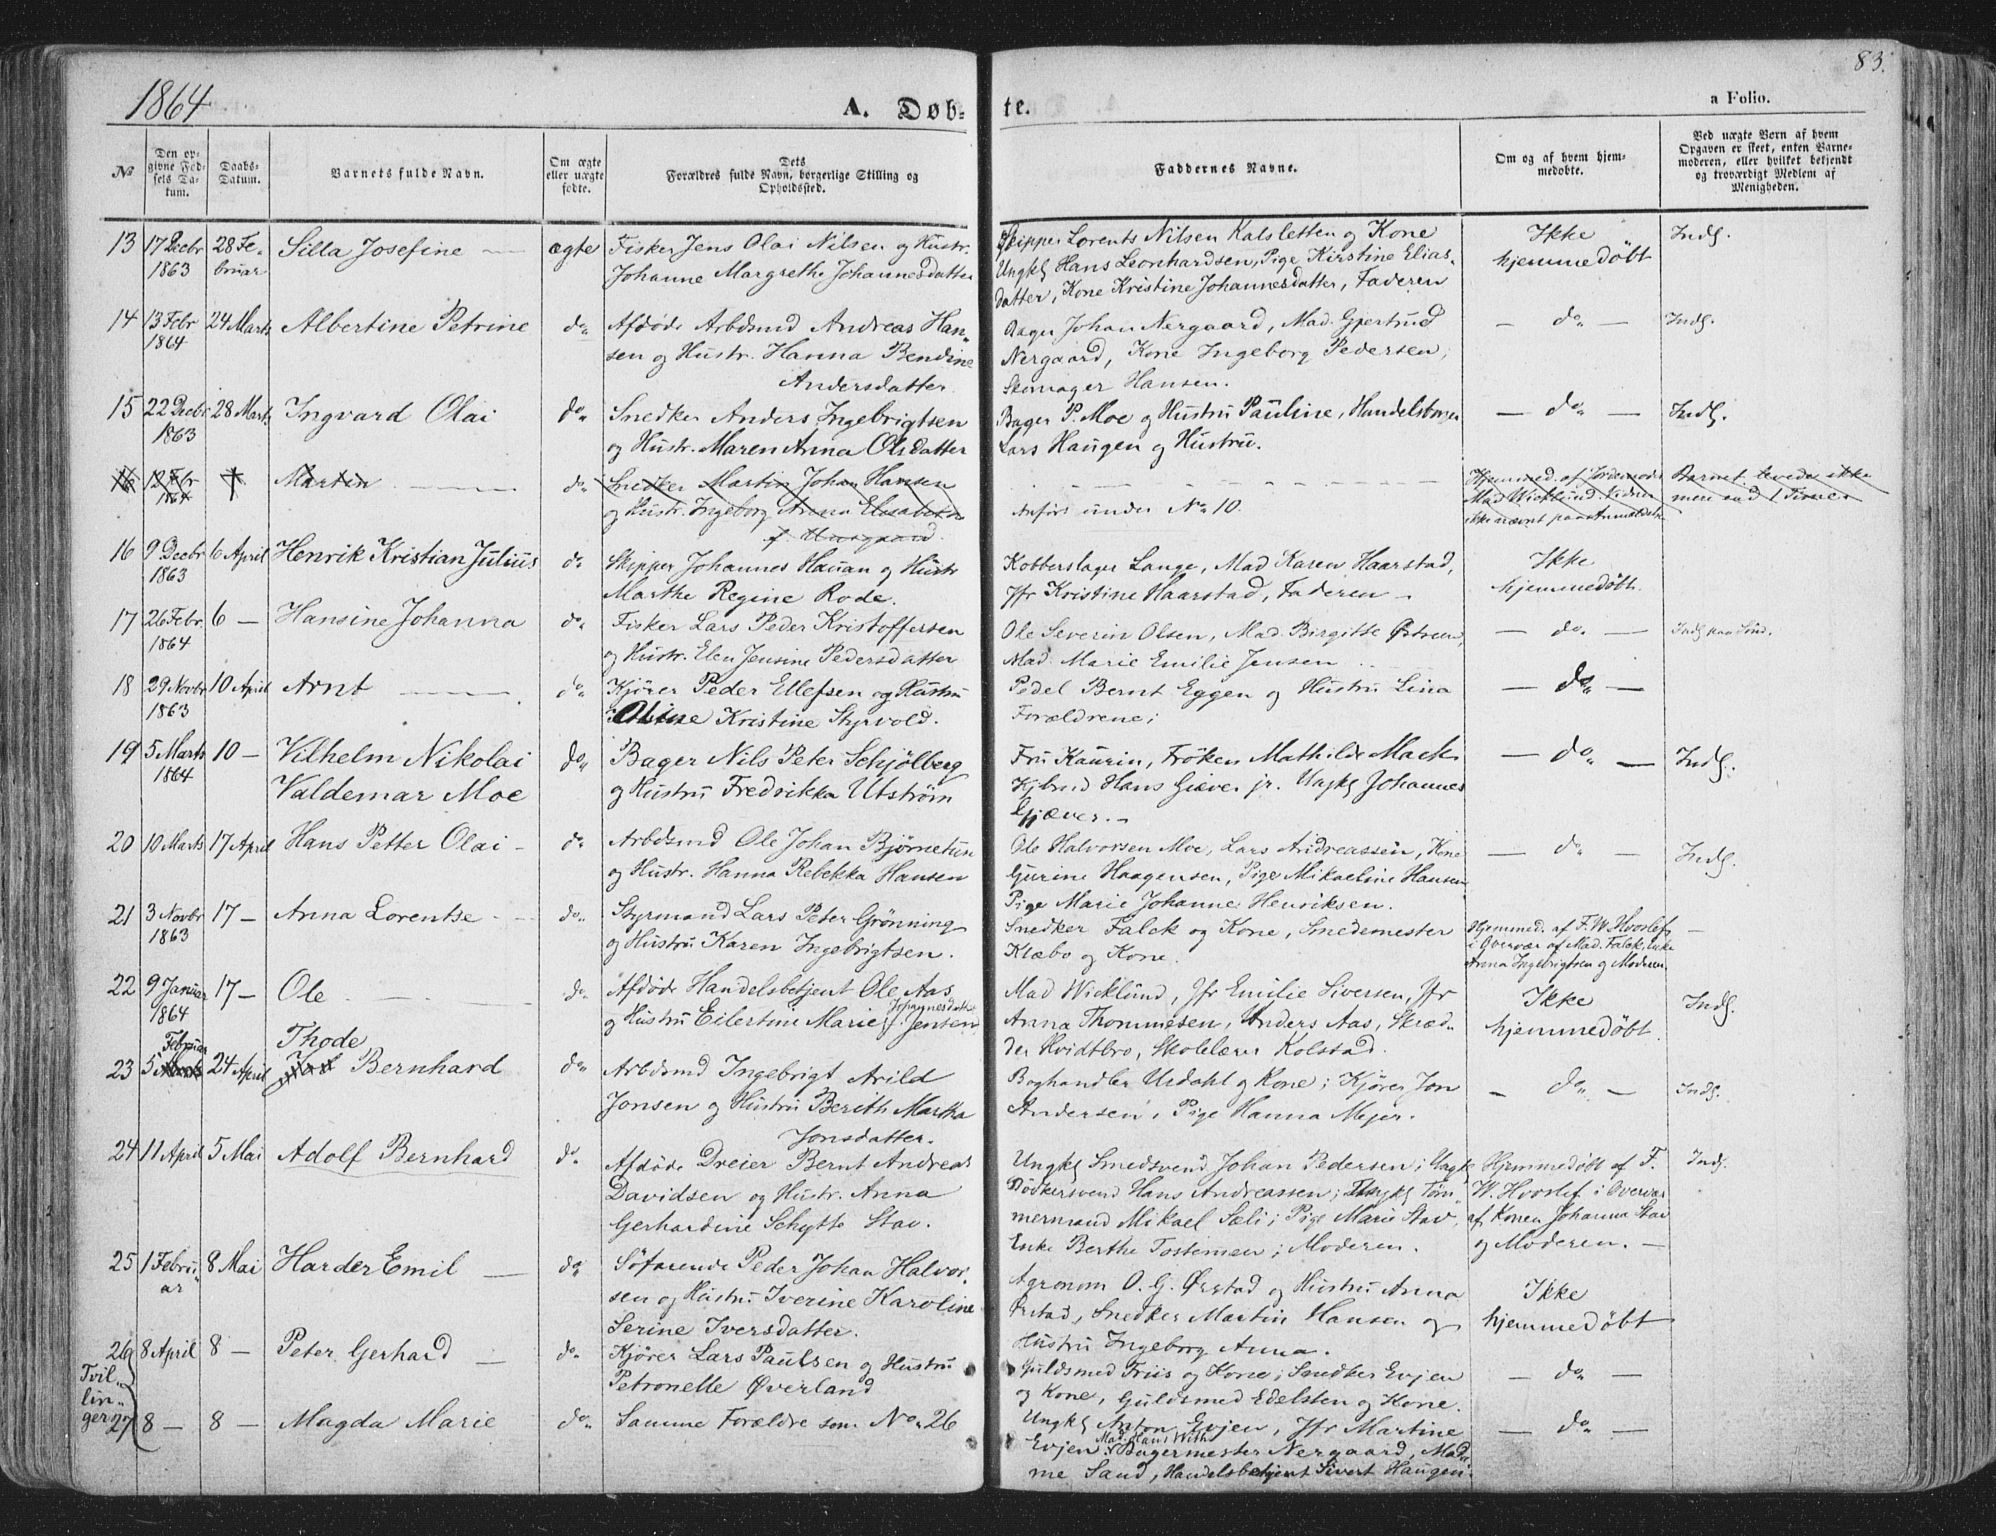 1864
A. Døb-
te.
83.
a Folio.
No
Den op-
givne Fød-
sels Da-
tum.
Daabs-
Datum.
Barnets fulde Navn.
Om ægte
eller uægte
fødte.
Dets
Forældres fulde Navn, borgerlige Stilling og
Opholdssted.
Faddernes Navne.
Om og af hvem hjem-
medøbte.
Ved uægte Børn af hvem
Opgaven er skeet, enten Barne-
moderen, eller hvilket bekjendt
og troværdigt Medlem af
Menigheden.
13
17 Decbr
1863
28 Fe-
bruar
Silla Josefine
ægte
Fisker Jens Olai Nilsen og Hustr.
Johanne Margrethe Johannesdatter
Skipper Lorents Nilsen Kalsletten og Kone
Ungkl Hans Leonhardsen, Pige Kirstine Elias-
datter, Kone Kristine Johannesdatter, Faderen
Ikke
hjemmedøbt
Indf.
14
13 Febr
1864
24 Marts
Albertine Petrine
do
Afdøde Arbdsmd Andreas Han-
sen og Hustr. Hanna Bendine
Andersdatter
Bager Johan Nergaard, Mad. Gjertrud
Nergaard, Kone Ingeborg Pedersen,
Skomager Hansen.
— do —
Indf.
15
22 Decbr
1863
28 Marts
Ingvard Olai
do
Snedker Anders Ingebrigtsen
og Hustr. Maren Anna Olsdatter
Bager P. Moe og Hustru Pauline, Handelsborger
Lars Haugen og Hustru.
— do —
Indf.
16
12 Febr
1864
†
Martin
do
Snedker Martin Johan Hansen
og Hustr. Ingeborg Anna Elisabeth
Anført under No 10
Hjemmed. af Jordemoder
Mad Wicklund. Tiden
ikke nævnt paa Anmeldelse
Barnet levede ikke
mere end 1 Time
16
9 Decbr
1863
6 April
Henrik Kristian Julius
do
Skipper Johannes Hauan og Hustr
Marthe Regine Rode.
Kobberslager Lange, Mad Karen Haarstad,
Jfr Kristine Haarstad, Faderen —
Ikke
hjemmedøbt.
17
26 Febr.
1864
6 —
Hansine Johanna
do
Fisker Lars Peder Kristoffersen
og Hustr. Elen Jensine Pedersdatter
Ole Severin Olsen, Mad. Birgitte
Mad. Marie Emilie Jensen
— do —
18
29 Novbr
1863
10 April
Arnt
do
Kjører Peder Ellefsen og Hustru
Oline Kristine Styrvold.
Pedel Bernt Eggen og Hustru Lina
Forældrene;
— do —
19
5 Marts
1864
10 —
Vilhelm Nikolai
Valdemar Moe
do
Bager Nils Peter Schjølberg
og Hustru Fredrikka Utstrøm
Fru Kaurin, Frøken Mathilde Mack
Kjbmd Hans Giæver jr. Ungkl Johannes
Gjæver. —
— do —
Indf.
20
10 Marts
17 April
Hans Petter Olai
do
Arbdsmd Ole Johan Bjørnetun
og Hustr. Hanna Rebekka Hansen
Ole Halvorsen Moe, Lars Andreassen, Kone
Gurine Haagensen, Pige Mikaeline Hansen
Pige Marie Johanne Henriksen.
— do —
Indf.
21
3 Novbr
1863
17 —
Anna Lorentse
do
Styrmand Lars Peter Grønning
og Hustru Karen Ingebrigtsen.
Snedker Falck og Kone, Smedemester
Klæbo og Kone.
Hjemmed. af F. W. Hvoslef
i Overvær af Mad. Falck, Enke
Anna Ingebrigtsen og Moderen.
22
9 Januar
1864
17 —
Ole
do
Afdøde Handelsbetjent Ole Aas
og Hustru Eilertine Marie f. Jensen
Johannesdatter
Mad Wicklund, Jfr Emilie Siversen, Jfr
Anna Thommesen, Anders Aas, Skræd-
der Hvidtbro, Skolelærer Kolstad.
Ikke
hjemmedøbt.
Indf.
23
Februar
5 Marts
24 April
Thode
Bernhard
do
Arbdsmd Ingebrigt Arild
Jonsen og Hustru Berith Martha
Jonsdatter.
Boghandler Urdahl og Kone; Kjører Jon
Andersen, Pige Hanna Mejer.
— do —
Indf.
24
11 April
5 Mai
Adolf Bernhard
do
Afdøde Dreier Bernt Andreas
Davidsen og Hustr. Anna
Gerhardine Schytte Stav.
Ungkl Smedsvend Johan Pedersen; Ungk
Bødkersvend Hans Andreassen; Ungkl Tøm-
mermand Mikael Sæli; Pige Marie Stav,
Enke Berthe Tostensen; Moderen.
Hjemmedøbt af F.
W. Hvoslef i Overvær
af Konen Johanna Stav
og Moderen. —
Indf.
25
1 Febru-
ar
8 Mai
Harder Emil
do
Søfarende Peder Johan Halvor-
sen og Hustru Iverine Karoline
Serine Iversdatter.
Agronom O. G. Ørstad og Hustru Anna
Ørstad, Snedker Martin Hansen og
Hustru Ingeborg Anna.
Ikke
hjemmedøbt
26
Tvil-
lin-
ger
8 April
8 —
Peter Gerhard
do
Kjører Lars Paulsen og Hustru
Petronelle Øverland
Guldsmed Friis og Kone; Snedker Evjen
og Kone, Guldsmed Edelsten og Kone.
— do —
27
8 —
8 —
Magda Marie
do
Samme Forældre som No 26
Ungkl Anton Evjen, Jfr Martine
Evjen, Bagermester Nergaard, Mada-
Mad. Hans With
me Sand, Handelsbetjent Sivert Haugen.
— do —